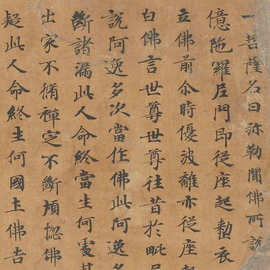 一菩薩名曰弥勒聞佛所說
億陁羅尼門即從座起整
立佛前尒時優波離亦從座
白佛言世尊世尊往昔於毗
說阿逸多次當作佛此阿逸
斷諸漏此人命終當生何處其
出家不脩禪定不斷煩惱佛
疑此人命終生何國土佛告